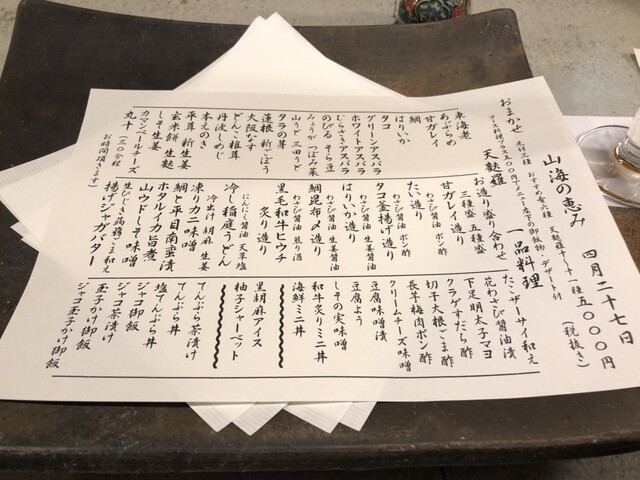 山海の恵み 四月二十七日
おまかせ
五〇〇〇円
(税抜き)
天麩羅
一品料理
車海老
あぶらめ
甘ガレイ
鯛
はりいか
タコ
グリーンアスパラ
ホワイトアスパラ
むらさきアスパラ
のびる そら豆
みょうが つぼみ菜
山うど 三田うど
タラの芽
蓮根 新ごぼう
大阪なす
どんこ椎茸
丹波しめじ
本えのき
平茸 新生姜
玄米餅 生麩
しそ生姜
カマンベールチーズ
丸十(三〇分程
お時間頂きます)
お造り盛り合わせ
三種盛 五種盛
甘ガレイ造り
わさび醤油 ポン酢
たい造り
わさび醤油 ポン酢
タコ釜揚げ造り
わさび醤油 生姜醤油
はりいか造り
わさび醤油 生姜醤油
鯛昆布〆造り
わさび醤油 煎り酒
黒毛和牛ヒウチ
炙り造り
にんにく醤油 天草塩
冷し稲庭うどん
冷出汁 胡麻 生姜
凍りカニ味噌
鯛と平目南蛮漬
ホタルイカ旨煮
山ウドしそ味噌
生ひじき病葱ごま和え
揚げジャガバター
たこザーサイ和え
花わさび醤油漬
下足明太子マヨ
クラゲすだち酢
切干大根ごま酢
長芋梅肉ポン酢
クリームチーズ味噌
豆腐味噌漬
豆腐よう
しその実味噌
和牛炙りミニ丼
海鮮ミニ丼
黒胡麻アイス
柚子シャーベット
てんぷら茶漬け
てんぷら丼
塩てんぷら丼
ジャコ御飯
ジャコ茶漬け
玉子かけ御飯
ジャコ玉子かけ御飯